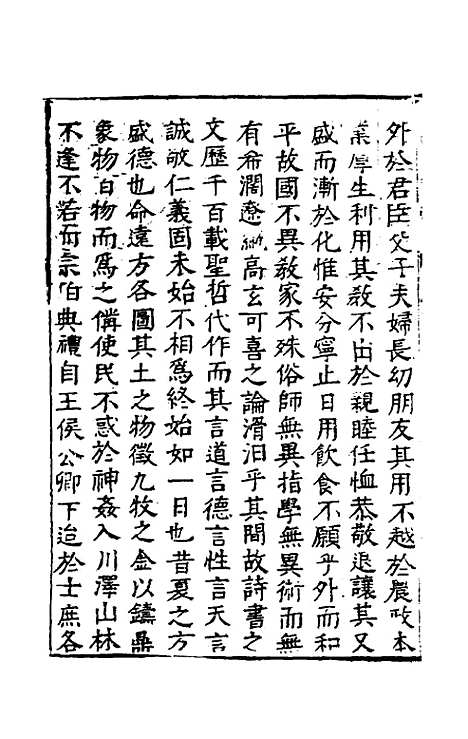 外於君臣父子夫婦長幼朋友其用不越於農政本
業厚生利用其敎不出於親睦任恤恭敬退讓其又
盛而漸於化惟安分寧止日用飮食不願乎外而和
平故國不異敎家不殊俗師無異指學無異術而無
有希濶遼緬高玄可喜之論滑汩乎其間故詩書之
文歷千百載聖哲代作而其言道言德言性言天言
誠敬仁義固未始不相爲終始如一日也昔夏之方
盛德也命遠方各圖其土之物徵九牧之金以鑄鼎
象物百物而爲之備使民不惑於神姦入川澤山林
不逢不若而宗伯典禮自王侯公卿下迨於士庶各